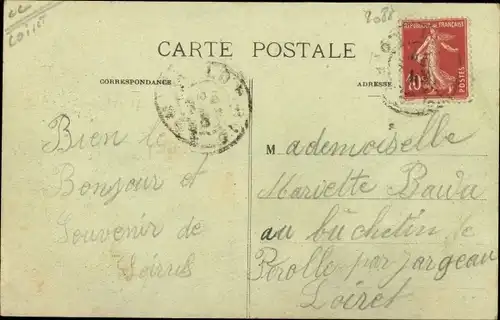 2088
LOIRET
CARTE POSTALE
CORRESPONDANCE
ADRESSE
RÉPUBLIQUE FRANÇAISE
10
POSTES
Bien le
Bonjour et
Souvenir de
Mademoiselle
Mariette
au buchetin de
par jargeau
Loiret